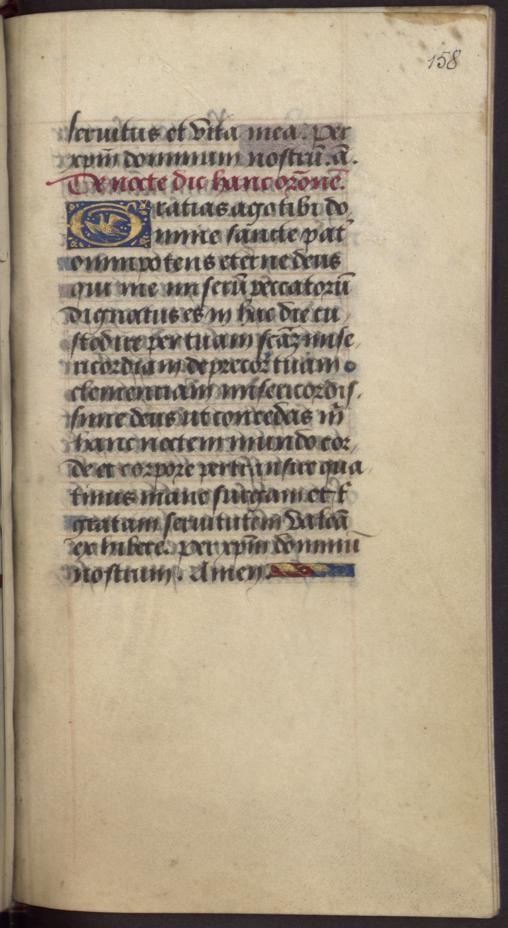 158
seruitus et vita mea. per
xpm̄ dominum nostrū. a.
De nocte dic hanc orōnē.
Gratias ago tibi do
mine sancte pat̄
omnipotens eterne deus
qui me miserū peccatorū
dignatus es in hac die cu
stodire per tuam scām mise
ricordiam deprecor tuam
clementiam misericordis
sime deus ut concedas m̄
hanc noctem mundo cor
de et corpore pertransire qua
tinus mane surgam et t̄
gratam seruitutem valeā
exhibere. per xpm̄ dominū
nostrum. Amen.